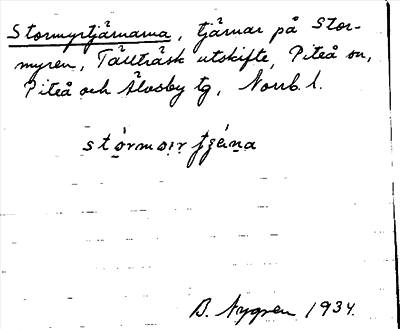 Stormyrtjärnarna, tjärnar på Stor-
myren, Tällträsk utskifte, Piteå sn,
Piteå och Älvsby tg, Norrb. l.
stórmoır tjǽṇa
B. Nygren 1934.